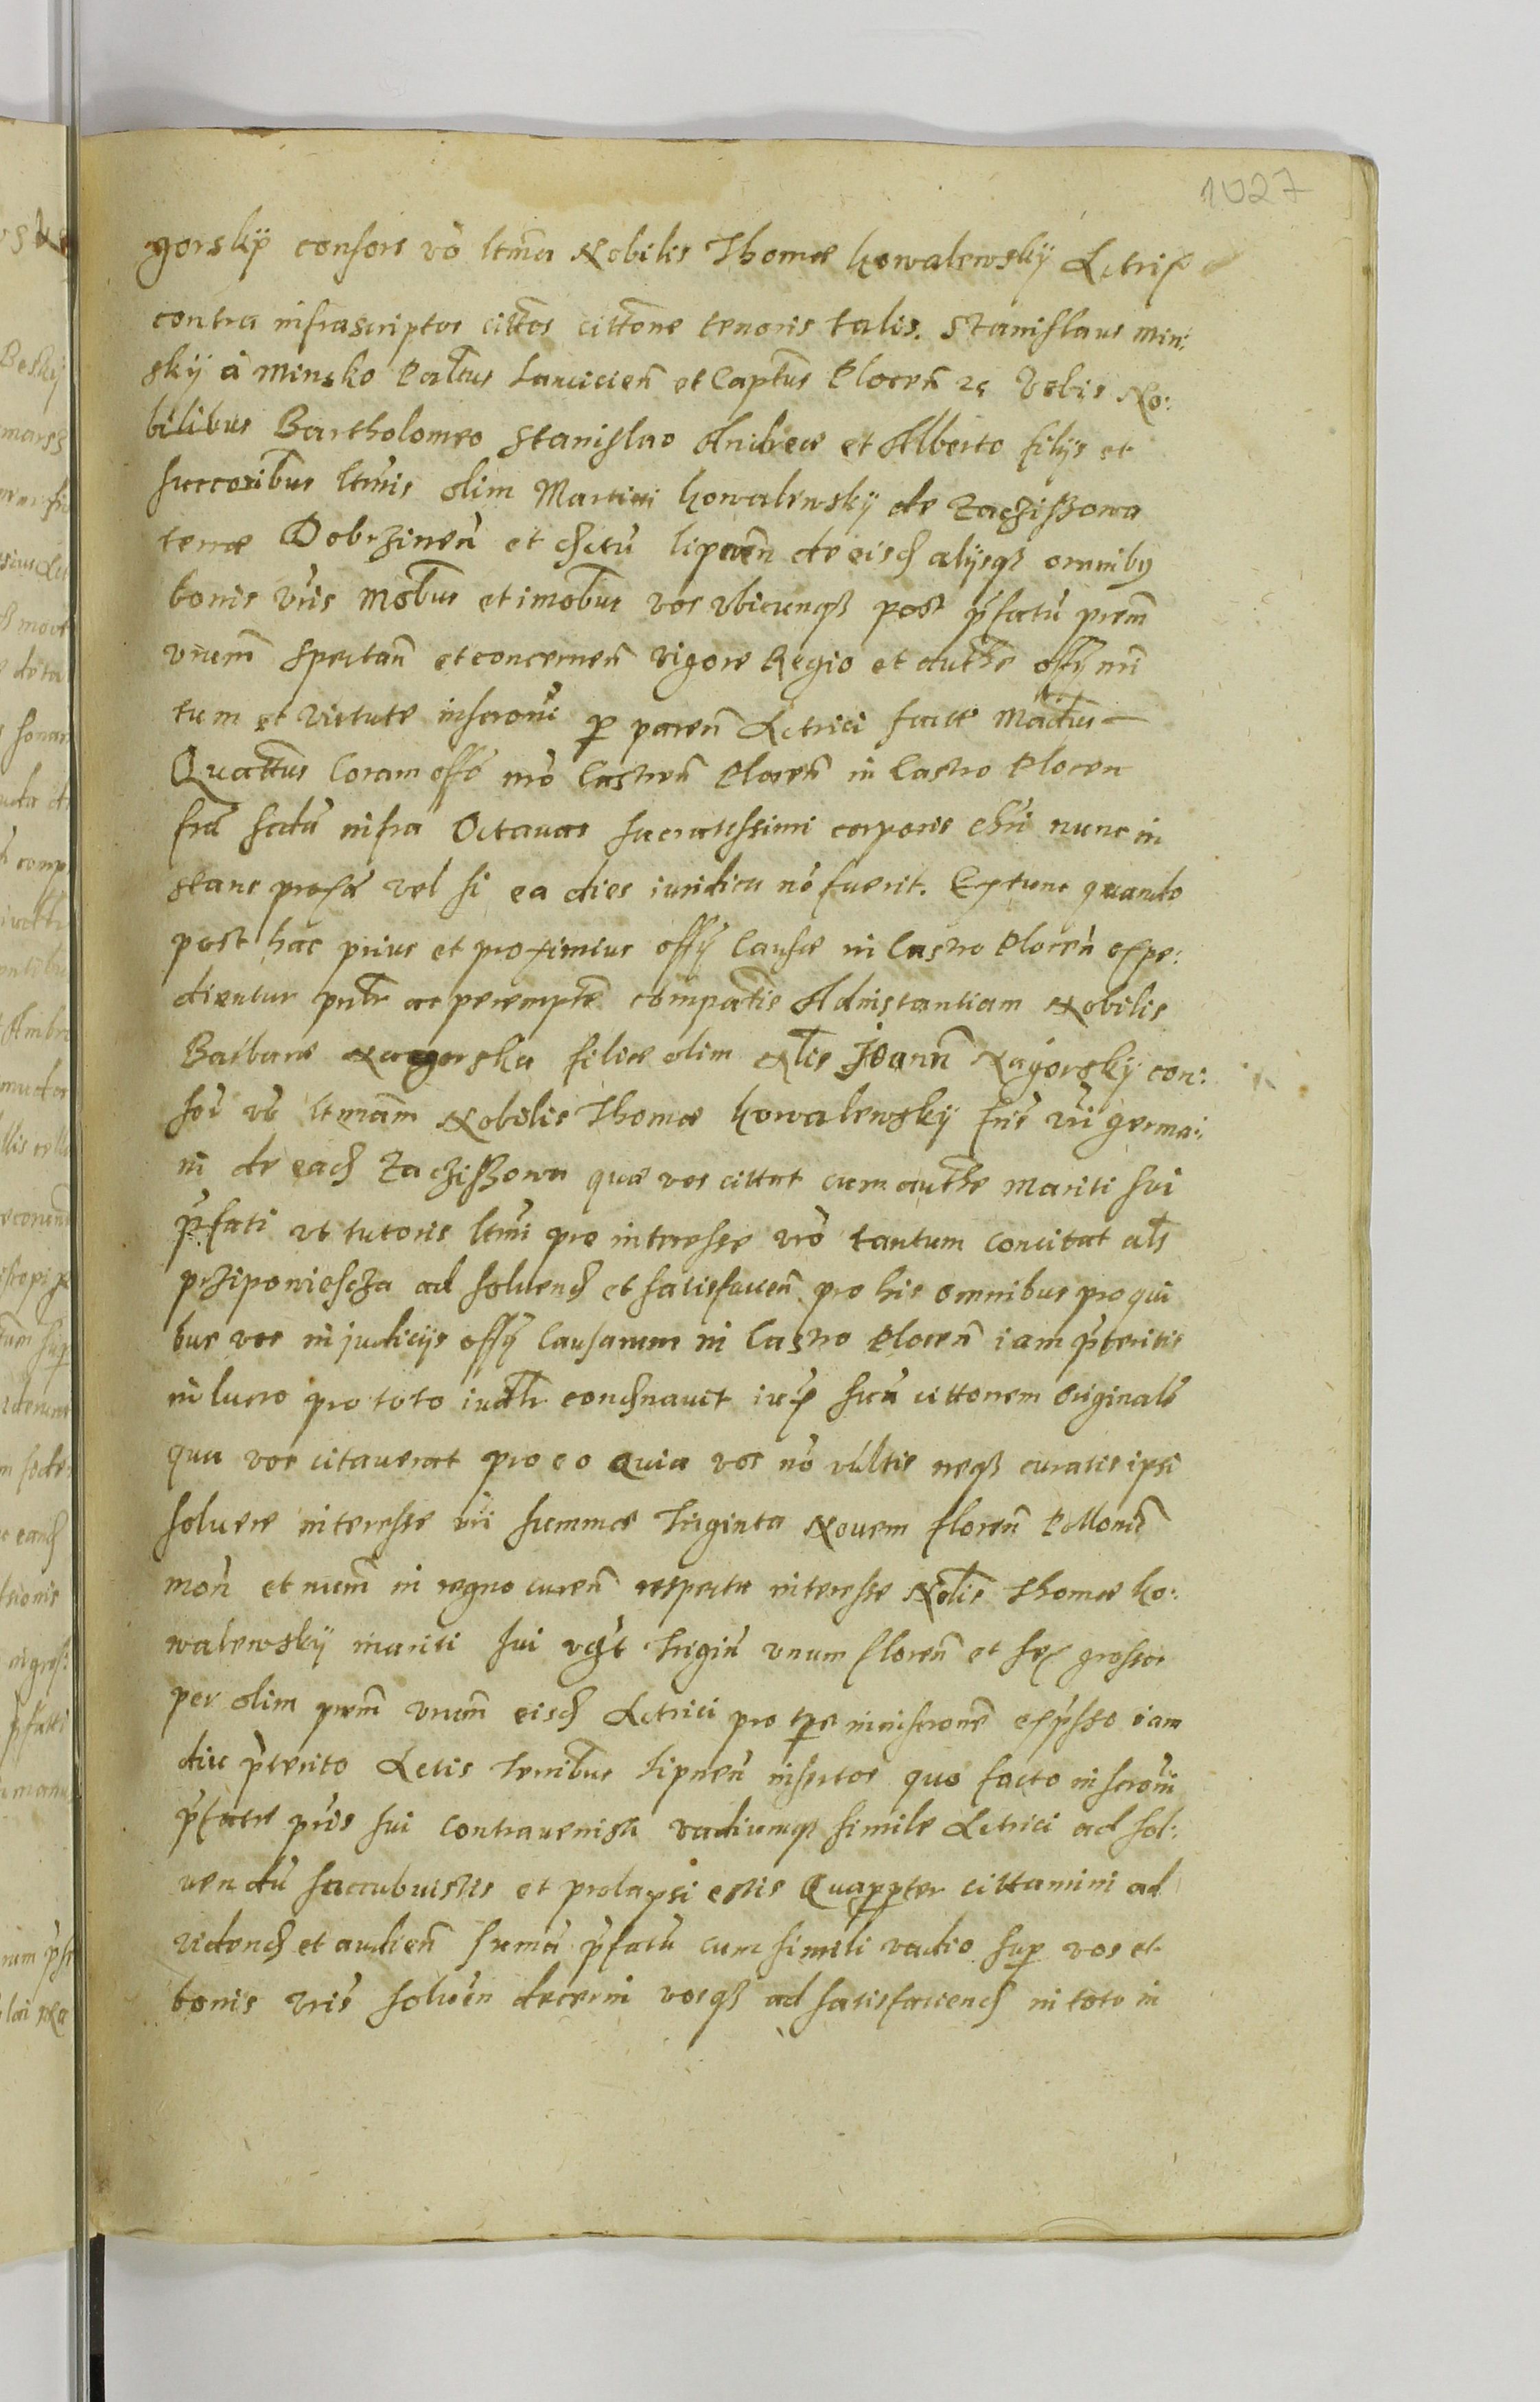 1027
gorskÿ consors vo ltma Nobilis Thomæ Kowalewskÿ Actrix
contra infrascriptos cittos cittone tenoris talis. Stanislaus Min:
skÿ à Minsko Paltus Lancicien et Captus Plocen zc Vobis No:
bilibus Bartholomeo Stanislao Andreæ et Alberto filÿs et
succoribus ltmis olim Martini Kowalewskÿ de Laczißowa
terræ Dobrzinen et dictu lipnen de eisd alÿsqz omnibus
bonis vris Mobus et imobus vos vbicunqz post pfatu prem
vrum Spectan et concernen Vigore Regio et authe offÿ nri
tum et Virtute inscroni per paren Actrici factæ Madus
Quattus Coram offo nro Castren Plocen in Castro Plocen
fra infra Octauas sacratissimi corporis chri nunc in
stans proxa vel si ea dies iuridica no fuerit. Extunc quando
post hac prius et proximius offÿ Causæ in Castro Plocen expe:
dientur pntr ac perempte compatis Ad instantiam Nobilis
Barbaræ Nagorska filiæ olim Nlis Joann Nagorskÿ con:
sor vo ltmam Nobilis Thomæ Kowalewskÿ fris vri germa:
ni de ead Laczißowa quæ vos cittat cum authe mariti sui
pfati vt tutoris ltmi pro interesse vro tantum concitat als
przipowiescza ad soluend et satisfacien pro his omnibus pro qui
bus vos in judicÿs offÿ Causarum in Castro Plocen iam pteritis
in lucro pro toto iudtr condnauit iux sua cittonem Originale
qua vos citauerat pro eo Quia vos no vultis neqz curatis ipsi
soluere interesse vri summæ Triginta Nouem floren Pollonic
mon et num in regno curen respectu interesse Nolis Thomæ Ko:
walewskÿ mariti sui vdzt Trigin vnum floren et sex grossos
per olim prem vrum eisd Actrici pro tpe in inscrone expsso iam
diu pterito Actis terribus Lipnen insertos quo facto inscroni
pfatæ pris sui contrauenistis vadiumqz simile Actrici ad sol:
uendu succubuistis et prolapsi estis Quapropter cittamini ad
vidend et audien suma pfatu cum simili vadio sup vos et
bonis vris soluen decerni vosqz ad satisfaciend in toto in